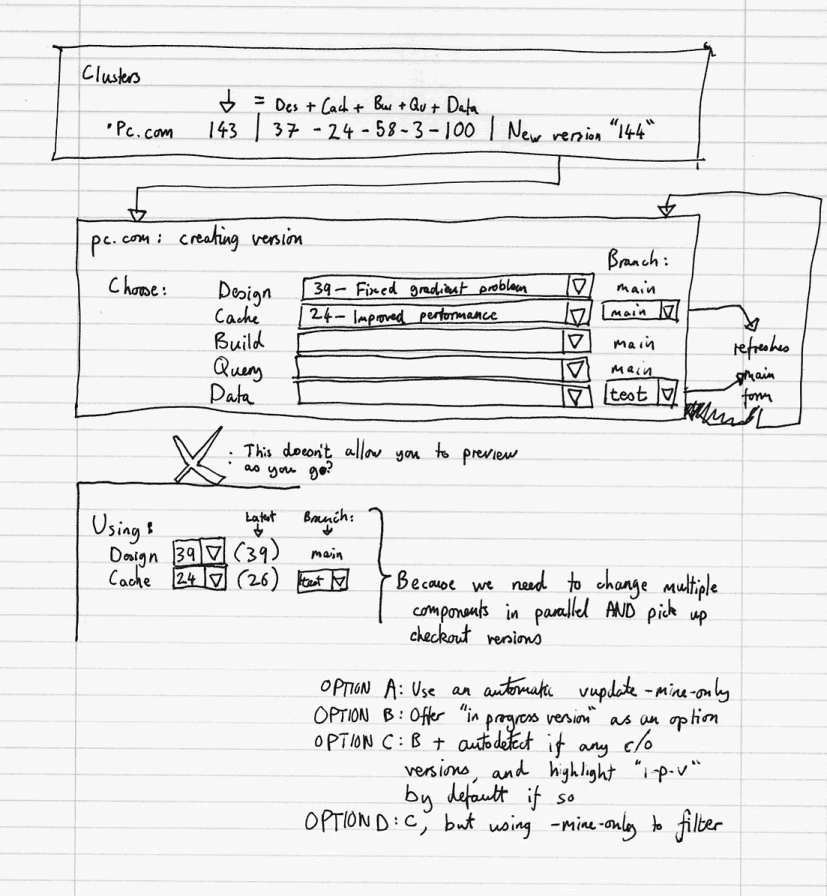 Clusters
= Des + Cach + Bu + Qu + Data
• Pc.com 143 | 37 - 24 - 58 - 3 - 100 | New version "144"
pc.com: creating version
Branch:
Choose: Design 39 - Fixed gradient problem main
Cache 24 - Improved performance main
Build main
Query main
Data test
refreshes
main
form
: This doesn't allow you to preview
as you go?
Using: Latest Branch:
Design 39 (39) main
Cache 24 (26) test
Because we need to change multiple
components in parallel AND pick up
checkout versions
OPTION A: Use an automatic vupdate -mine-only
OPTION B: Offer "in progress version" as an option
OPTION C: B + autodetect if any c/o
versions, and highlight "i-p-v"
by default if so
OPTION D: C, but using -mine-only to filter